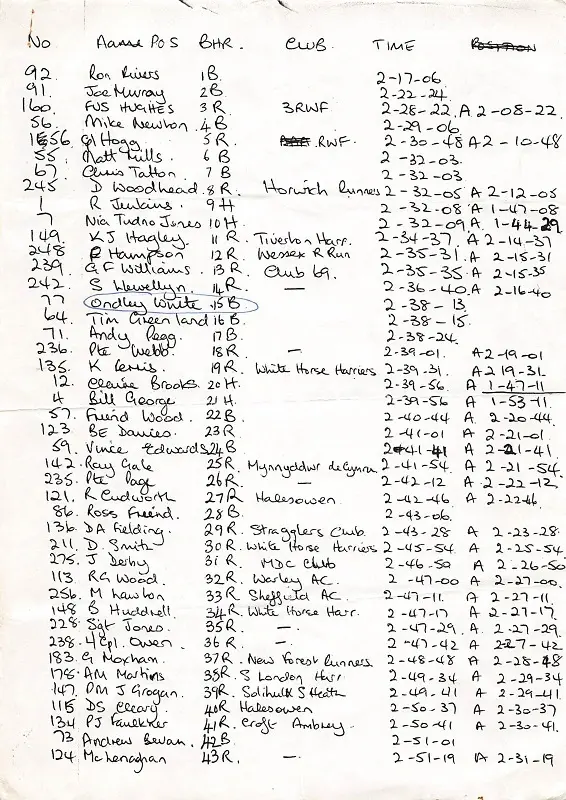 No Name POS BHR. CLUB TIME POSITION
92. Ron Rivers 1B 2-17-06.
91. Joe Murray 2B 2-22-24.
160. FUS HUGHES 3R 3RWF 2-28-22. A 2-08-22.
56. Mike Newton 4B 2-29-06.
1556. Hogg 5R RWF. 2-30-48 A 2-10-48
55. Matt Mills 6B 2-32-03.
67. Chris Tatton 7B 2-32-03.
245 D Woodhead 8R. Horwich Runners 2-32-05 A 2-12-05
1 R Jenkins 9H 2-32-08 A 1-47-08
7 Nia Tudno Jones 10H. 2-32-09. A 1-44-29.
149. KJ Hagley 11R. Tiverton Harr. 2-34-37. A 2-14-37
248 Hampson 12R. Wessex R Run 2-35-31. A 2-15-31
239. GF Williams. 13R. Club 69. 2-35-35 A 2-15-35
242 S Llewellyn. 14R — 2-36-40 A 2-16-40
77 Ondley White .15B 2-38-13.
64. Tim Greenland 16B. 2-38-15.
71. Andy Pegg. 17B. 2-38-24.
236. Pte Webb. 18R — 2-39-01. A 2-19-01
135. K Lewis. 19R. White Horse Harriers 2-39-31. A 2 19-31
12. Brooks. 20H. 2-39-56. A 1-47-11
4 Bill George 21H. 2-39-56 A 1-53-11.
57. Friend Wood. 22B. 2-40-44 A 2-20-44.
123 BE Davies. 23R. 2-41-01 A 2-21-01.
59. Vince Edwards 24B 2-41-41 A 2-21-41
142. Ray Gale 25R. 2-41-54. A 2-21-54.
235. Pte Page 26R. — 2-42-12 A 2-22-12.
121. R Cudworth 27R Halesowen. 2-42-46 A 2-2246
86. Ross Friend. 28B 2-43-06.
136. DA Fielding. 29R. Stragglers Club. 2-43-28 A 2-23-28.
211. D. Smith 30R. White Horse Harriers 2-45-54 A 2-25-54.
275. J Derby 31R. MDC Club 2-46-50 A 2-26-50
113 RG Wood. 32R. Warley AC. 2-47-00 A 2-27-00.
256. M Lawton 33R. Sheffield AC. 2-47-11. A 2-27-11
148 B Huddwell 34R. White Horse Harr. 2-47-17 A 2-27-17.
228. Sgt Jones. 35R. —. 2-47-29. A 2-27-29.
238. Cpl. Owen. 36R. —. 2-47-42 A 227-42
183. G Moxham. 37R. New Forest Runners 2-48-48 A 2-28-48
178. AM Martins 38R. S London Harr. 2-49-34 A 2-29-34
147. DM J Grogan. 39R. Solihull S Heath 2-49-41 A 2-29-41.
115 DS Cleary. 40R Halesowen 2-50-37 A 2-30-37
134 PJ Faulkner 41R. Croft Ambrey. 2-50-41 A 2-30-41.
73 Andrew Bevan. 42B 2-51-01
124 McLenaghan 43R. —. 2-51-19 A 2-31-19